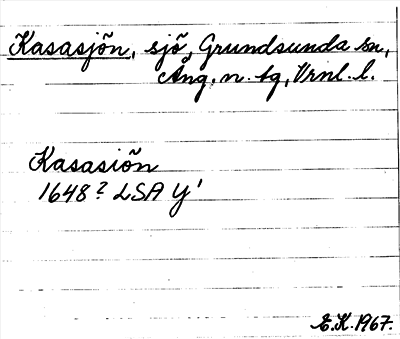 Kasasjön, sjö, Grundsunda sn,
Ång. n. tg, Vrnl. l.
Kasasiön
1648? LSA Y'
E.K. 1967.